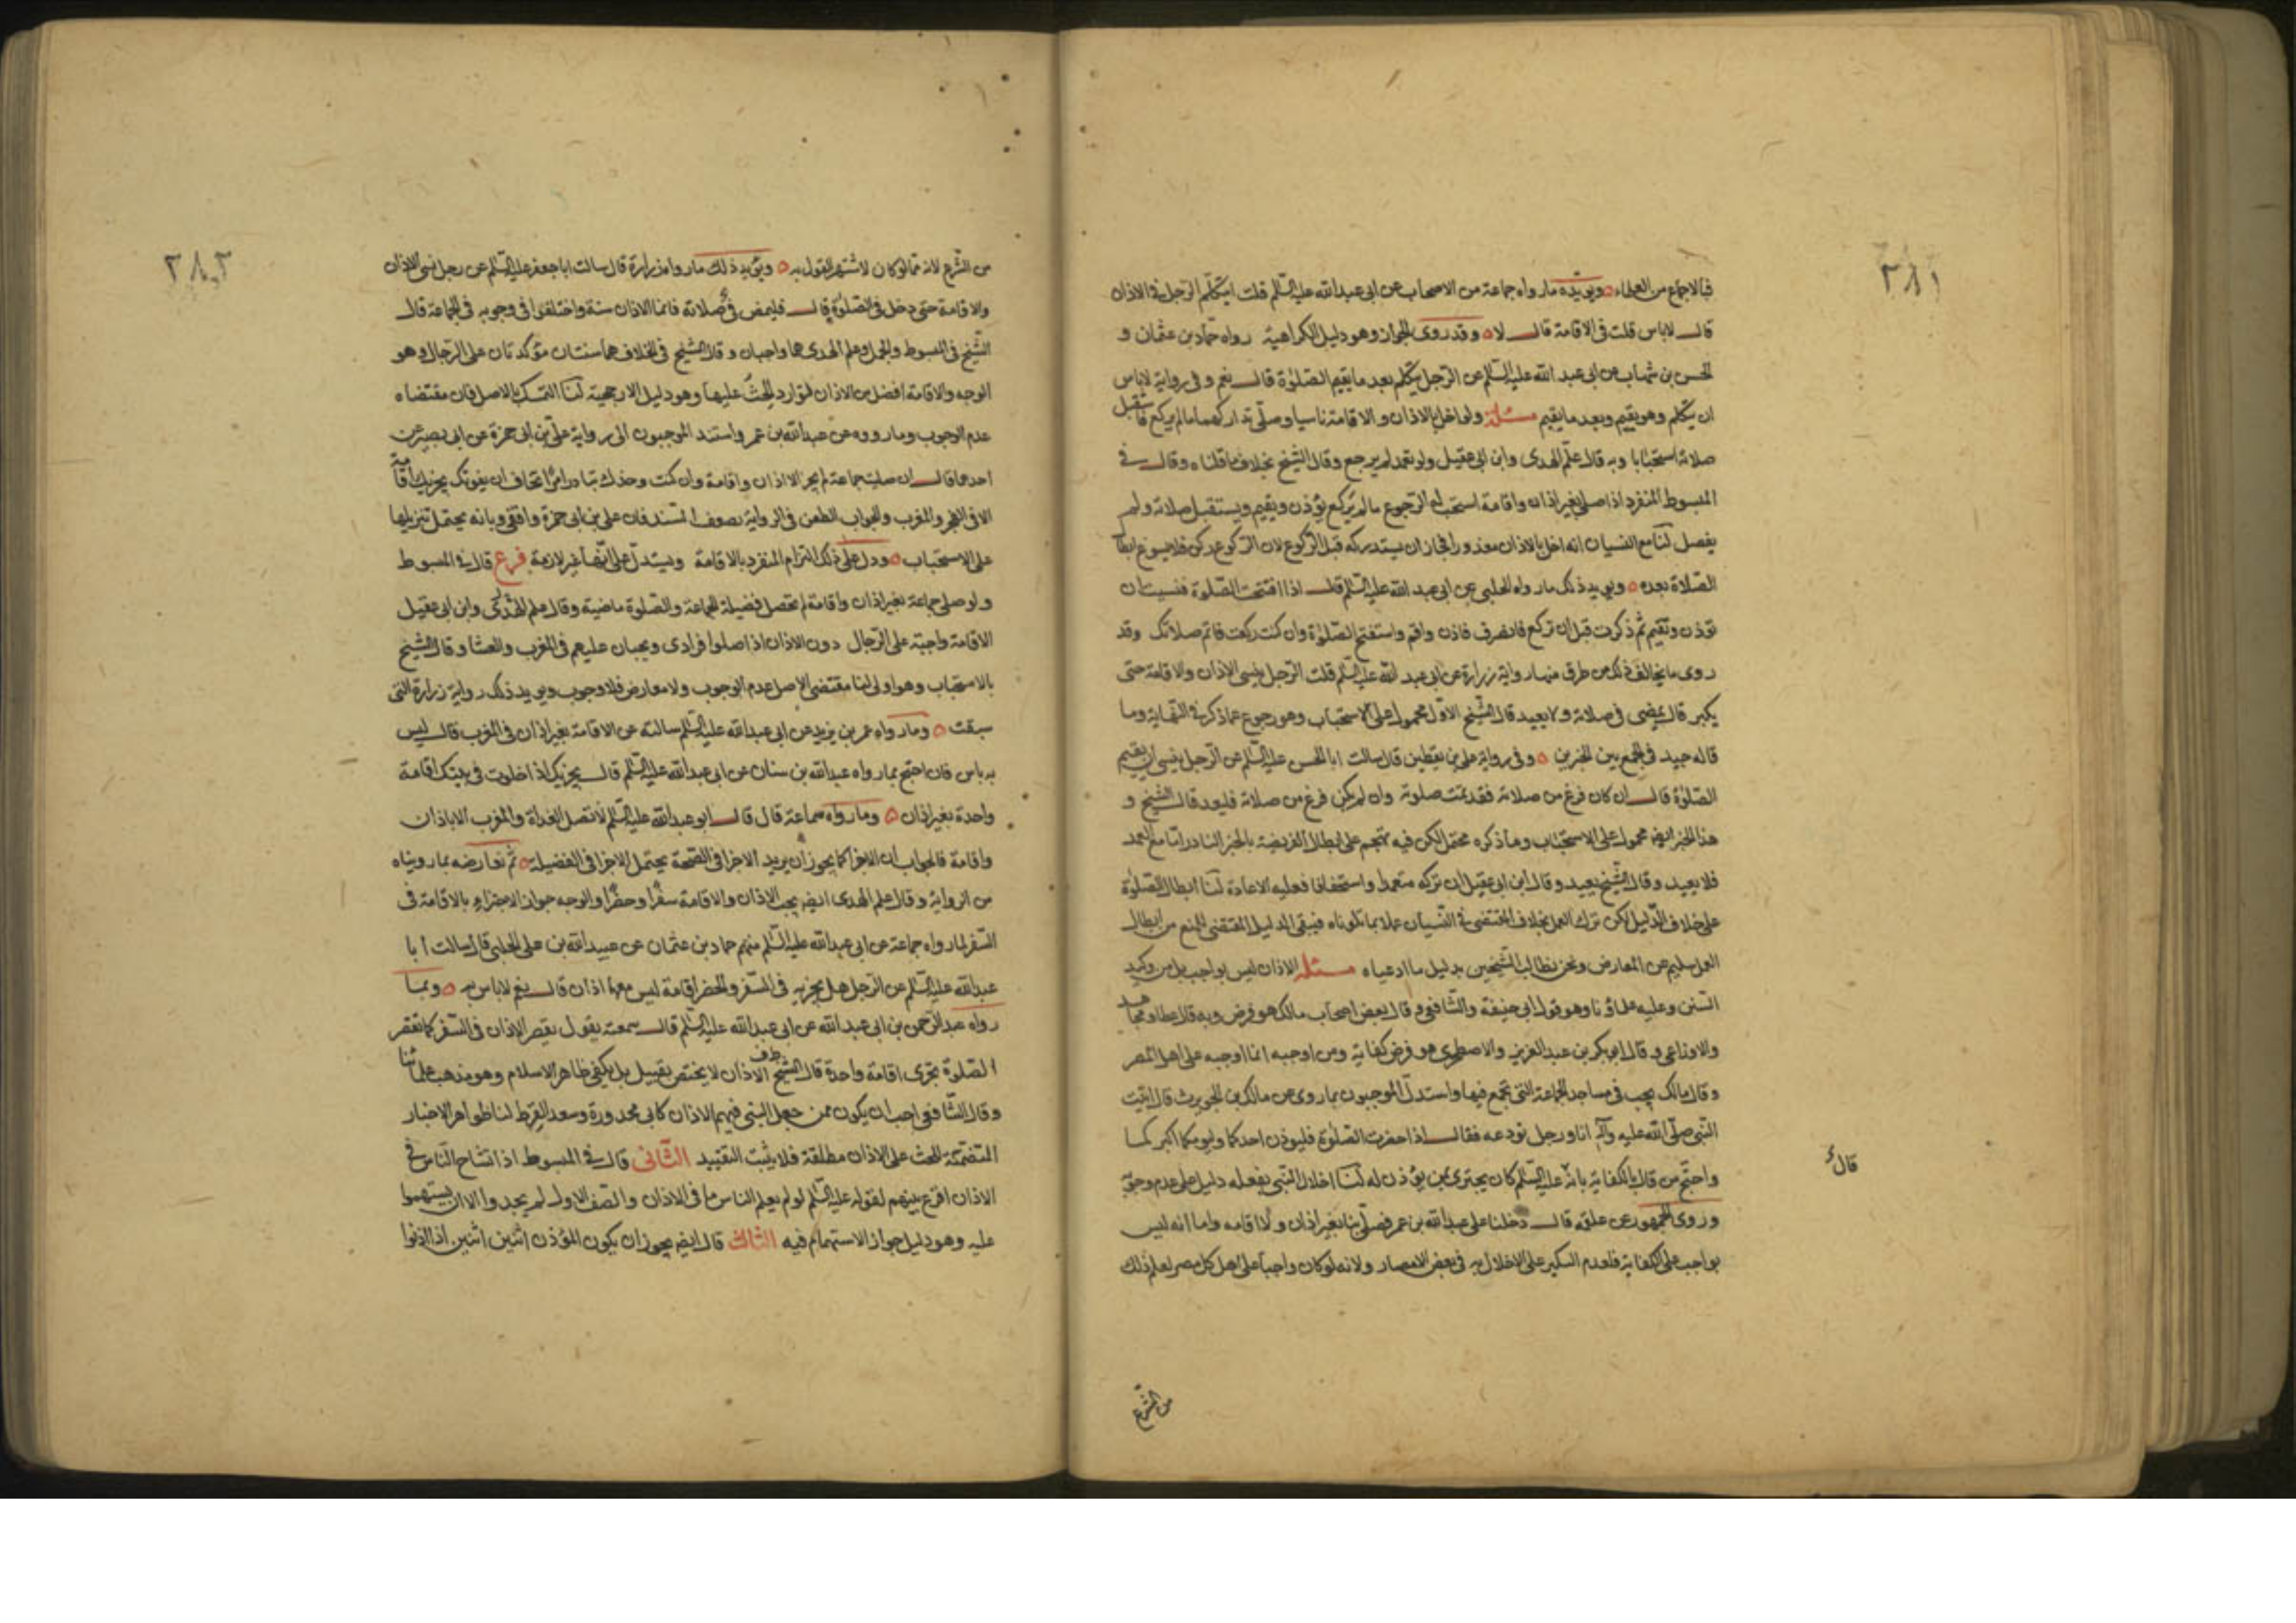 ٢٨١
فبالاجماع من العلماء ويؤيده مارواه جماعة من الاصحاب عن ابى عبدالله عليه السّلم قلت ايتكلم الرّجل فى الاذان
قال لاباس قلت فى الاقامة قال لا وقد روى الجواز وهو دليل الكراهية رواه حمّاد بن عثمان و
الحسن بن شهاب عن ابى عبد الله عليه السّلم عن الرّجل يتكلم بعد ما يقيم الصّلوة قال نعم وفى رواية لاباس
ان يتكلم وهو يقيم وبعد ما يقيم مسئلة ولو اخل بالاذان والاقامة ناسيا وصلّى تداركهما مالم يركع فاستقبل
صلاته استحبابا وبه قال علم الهدى وابن ابى عقيل ولو تعمد لم يرجع وقال الشيخ بخلاف ما قلناه وقال فى
المبسوط المنفرد اذا صلى بغير اذان واقامة استحب له الرّجوع مالم يركع يؤذن ويقيم ويستقبل صلاته ولم
يفصل لنا مع النسيان انه اخل بالاذان معذورا فجاز ان يستدركه قبل الركوع لان الركوع ركن فلايسوغ ابطال
الصّلاة بعده ويويد ذلك مارواه الحلبى عن ابى عبد الله عليه السّلم قال اذا افتتحت الصّلوة فنسيت ان
تؤذن وتقيم ثم ذكرت قبل ان تركع فانصرف فاذن واقم واستفتح الصّلوة وان كنت ركعت فاتم صلاتك وقد
روى ما يخالف ذلك من طرق منها رواية زرارة عن ابى عبد الله عليه السّلم قلت الرّجل ينسى الاذان والاقامة حتى
يكبر قال يمضى فى صلاته ولا يعيد قال الشيخ الاول محمول على الاستحباب وهو رجوع عما ذكره فى النهاية وما
قاله جيد فى الجمع بين الخبرين وفى رواية على بن يقطين قال سالت ابا الحسن عليه السّلم عن الرّجل ينسى ان يقيم
الصّلوة قال ان كان فرغ من صلاته فقد تمت صلوته وان لم يكن فرغ من صلاته فليعد قال الشيخ و
هذا الخبر ايضا محمول على الاستحباب وما ذكره محتمل لكن فيه تهجم على ابطال الفريضة بالخبر النادر اما مع العمد
فلا يعيد وقال الشيخ يعيد وقال ابن ابى عقيل ان تركه متعمدا واستخفافا فعليه الاعادة لنا ابطال الصّلوة
على خلاف الدّليل لكن ترك العمل بخلاف المقتضى فى النّسيان عملا بما تلوناه فيبقى الدليل المقتضى للمنع من ابطال
العمل سليم عن المعارض ونحن نطالب الشّيخين بدليل ما ادعياه مسئلة الاذان ليس بواجب بل من وكيد
السّنن وعليه علماؤنا وهو قول ابى حنيفة والشّافعى وقال بعض اصحاب مالك هو فرض وبه قال عطا ومجاهد
والاوزاعى وقال ابو بكر بن عبد العزيز والاصطخرى هو فرض كفاية ومن اوجبه انما اوجبه على اهل المصر
وقال مالك يجب فى مساجد الجماعة التى يجمع فيها واستدل الموجبون بما روى عن مالك بن الحويرث قال اتيت
النّبى صلّى الله عليه وآله انا ورجل نودعه فقال اذا حضرت الصّلوة فليؤذن احدكما وليؤمكما اكبركما
واحتج من قال بالكفاية بانّه عليه السّلم كان يجتزى بمن يؤذن له لنا اخلال النّبى بفعله دليل على عدم وجوبه
وروى الجمهور عن علقمة قال دخلنا على عبد الله بن عمر فصلّى بنا بغير اذان ولا اقامه واما انه ليس
بواجب على الكفاية فلعدم النكير على الاخلال به فى بعض الامصار ولانه لو كان واجبا على اهل كل مصر لعلم ذلك
قال
من الشّرع
٢٨٢
من الشّرع لانه مما لو كان لاشتهر القول به ويؤيد ذلك مارواه زرارة قال سالت ابا جعفر عليه السّلم عن رجل نسى الاذان
والاقامة حتى دخل فى الصّلوة قال فليمض فى صلاته فانما الاذان سنة واختلفوا فى وجوبه فى الجماعة قال
الشّيخ فى المبسوط والجمل وعلم الهدى هما واجبان وقال الشيخ فى الخلاف هما سنتان مؤكدتان على الرّجال وهو
الوجه والاقامة افضل من الاذان لتوارد الحثّ عليها وهو دليل الارجحية لنا التمسك بالاصل فان مقتضاه
عدم الوجوب وما رووه عن عبد الله بن عمر واستند الموجبون الى رواية على بن ابى حمزة عن ابى بصير عن
احدهما قال ان صليت جماعة لم يجز الا اذان واقامة وان كنت وحدك تبادر امرا تخاف ان يفوتك يجزيك اقامة
الا فى الفجر والمغرب والجواب الطعن فى الرواية بضعف السّند فان على بن ابى حمزة واقفى وبانه يحتمل تنزيلها
على الاستحباب ودل على ذلك التزام المنفرد بالاقامة ويستدل على انها غير لازمة فرع قال فى المبسوط
ولو صلى جماعة بغير اذان واقامة لم تحصل فضيلة الجماعة والصّلوة ماضية وقال علم الهدى وابن ابى عقيل
الاقامة واجبة على الرّجال دون الاذان اذا صلوا فرادى ويجبان عليهم فى المغرب والعشا وقال الشيخ
بالاستحباب وهو اولى لنا مقتضى الاصل عدم الوجوب ولا معارض فلا وجوب ويويد ذلك رواية زرارة التى
سبقت ومارواه عمر بن يزيد عن ابى عبد الله عليه السّلم سالته عن الاقامة بغير اذان فى المغرب قال ليس
به باس فان احتج بما رواه عبد الله بن سنان عن ابى عبد الله عليه السّلم قال يجزيك اذا خلوت فى بيتك اقامة
واحدة بغير اذان ومارواه سماعة قال قال ابو عبد الله عليه السّلم لا تصل الغداة والمغرب الا باذان
واقامة فالجواب ان الاجزا كما يجوز ان يريد الاجزا فى الصّحة يحتمل الاجزا فى الفضيلة ثم نعارضه بما رويناه
من الرواية وقال علم الهدى ايضا يجب الاذان والاقامة سفرا وحضرا والوجه جواز الاجتزاء بالاقامة فى
السّفر لما رواه جماعة عن ابى عبد الله عليه السّلم منهم حماد بن عثمان عن عبيد الله بن على الحلبى قال سالت ابا
عبد الله عليه السّلم عن الرّجل هل يجزيه فى السّفر والحضر اقامة ليس معها اذان قال نعم لاباس به وبما
رواه عبد الرّحمن بن ابى عبد الله عن ابى عبد الله عليه السّلم قال سمعته يقول يقصر الاذان فى السّفر كما تقصر
الصّلوة تجزى اقامة واحدة قال الشيخ فى ف الاذان لا يختص بقبيل بل يكفى ظاهر الاسلام وهو مذهب علمائنا
وقال الشّافعى احب ان يكون ممن جعل النبى فيهم الاذان كابى محذورة وسعد القرظ لنا ظواهر الاخبار
المتضمّنة للحث على الاذان مطلقة فلا يثبت التقييد الثّانى قال فى المبسوط اذا تشاح النّاس فى
الاذان اقرع بينهم لقوله عليه السّلم لو لم يعلم الناس ما فى الاذان والصّف الاول لم يجدوا الا ان يستهموا
عليه وهو دليل جواز الاستهمام فيه الثالث قال ايضا يجوز ان يكون المؤذن اثنين اثنين اذا اذنوا